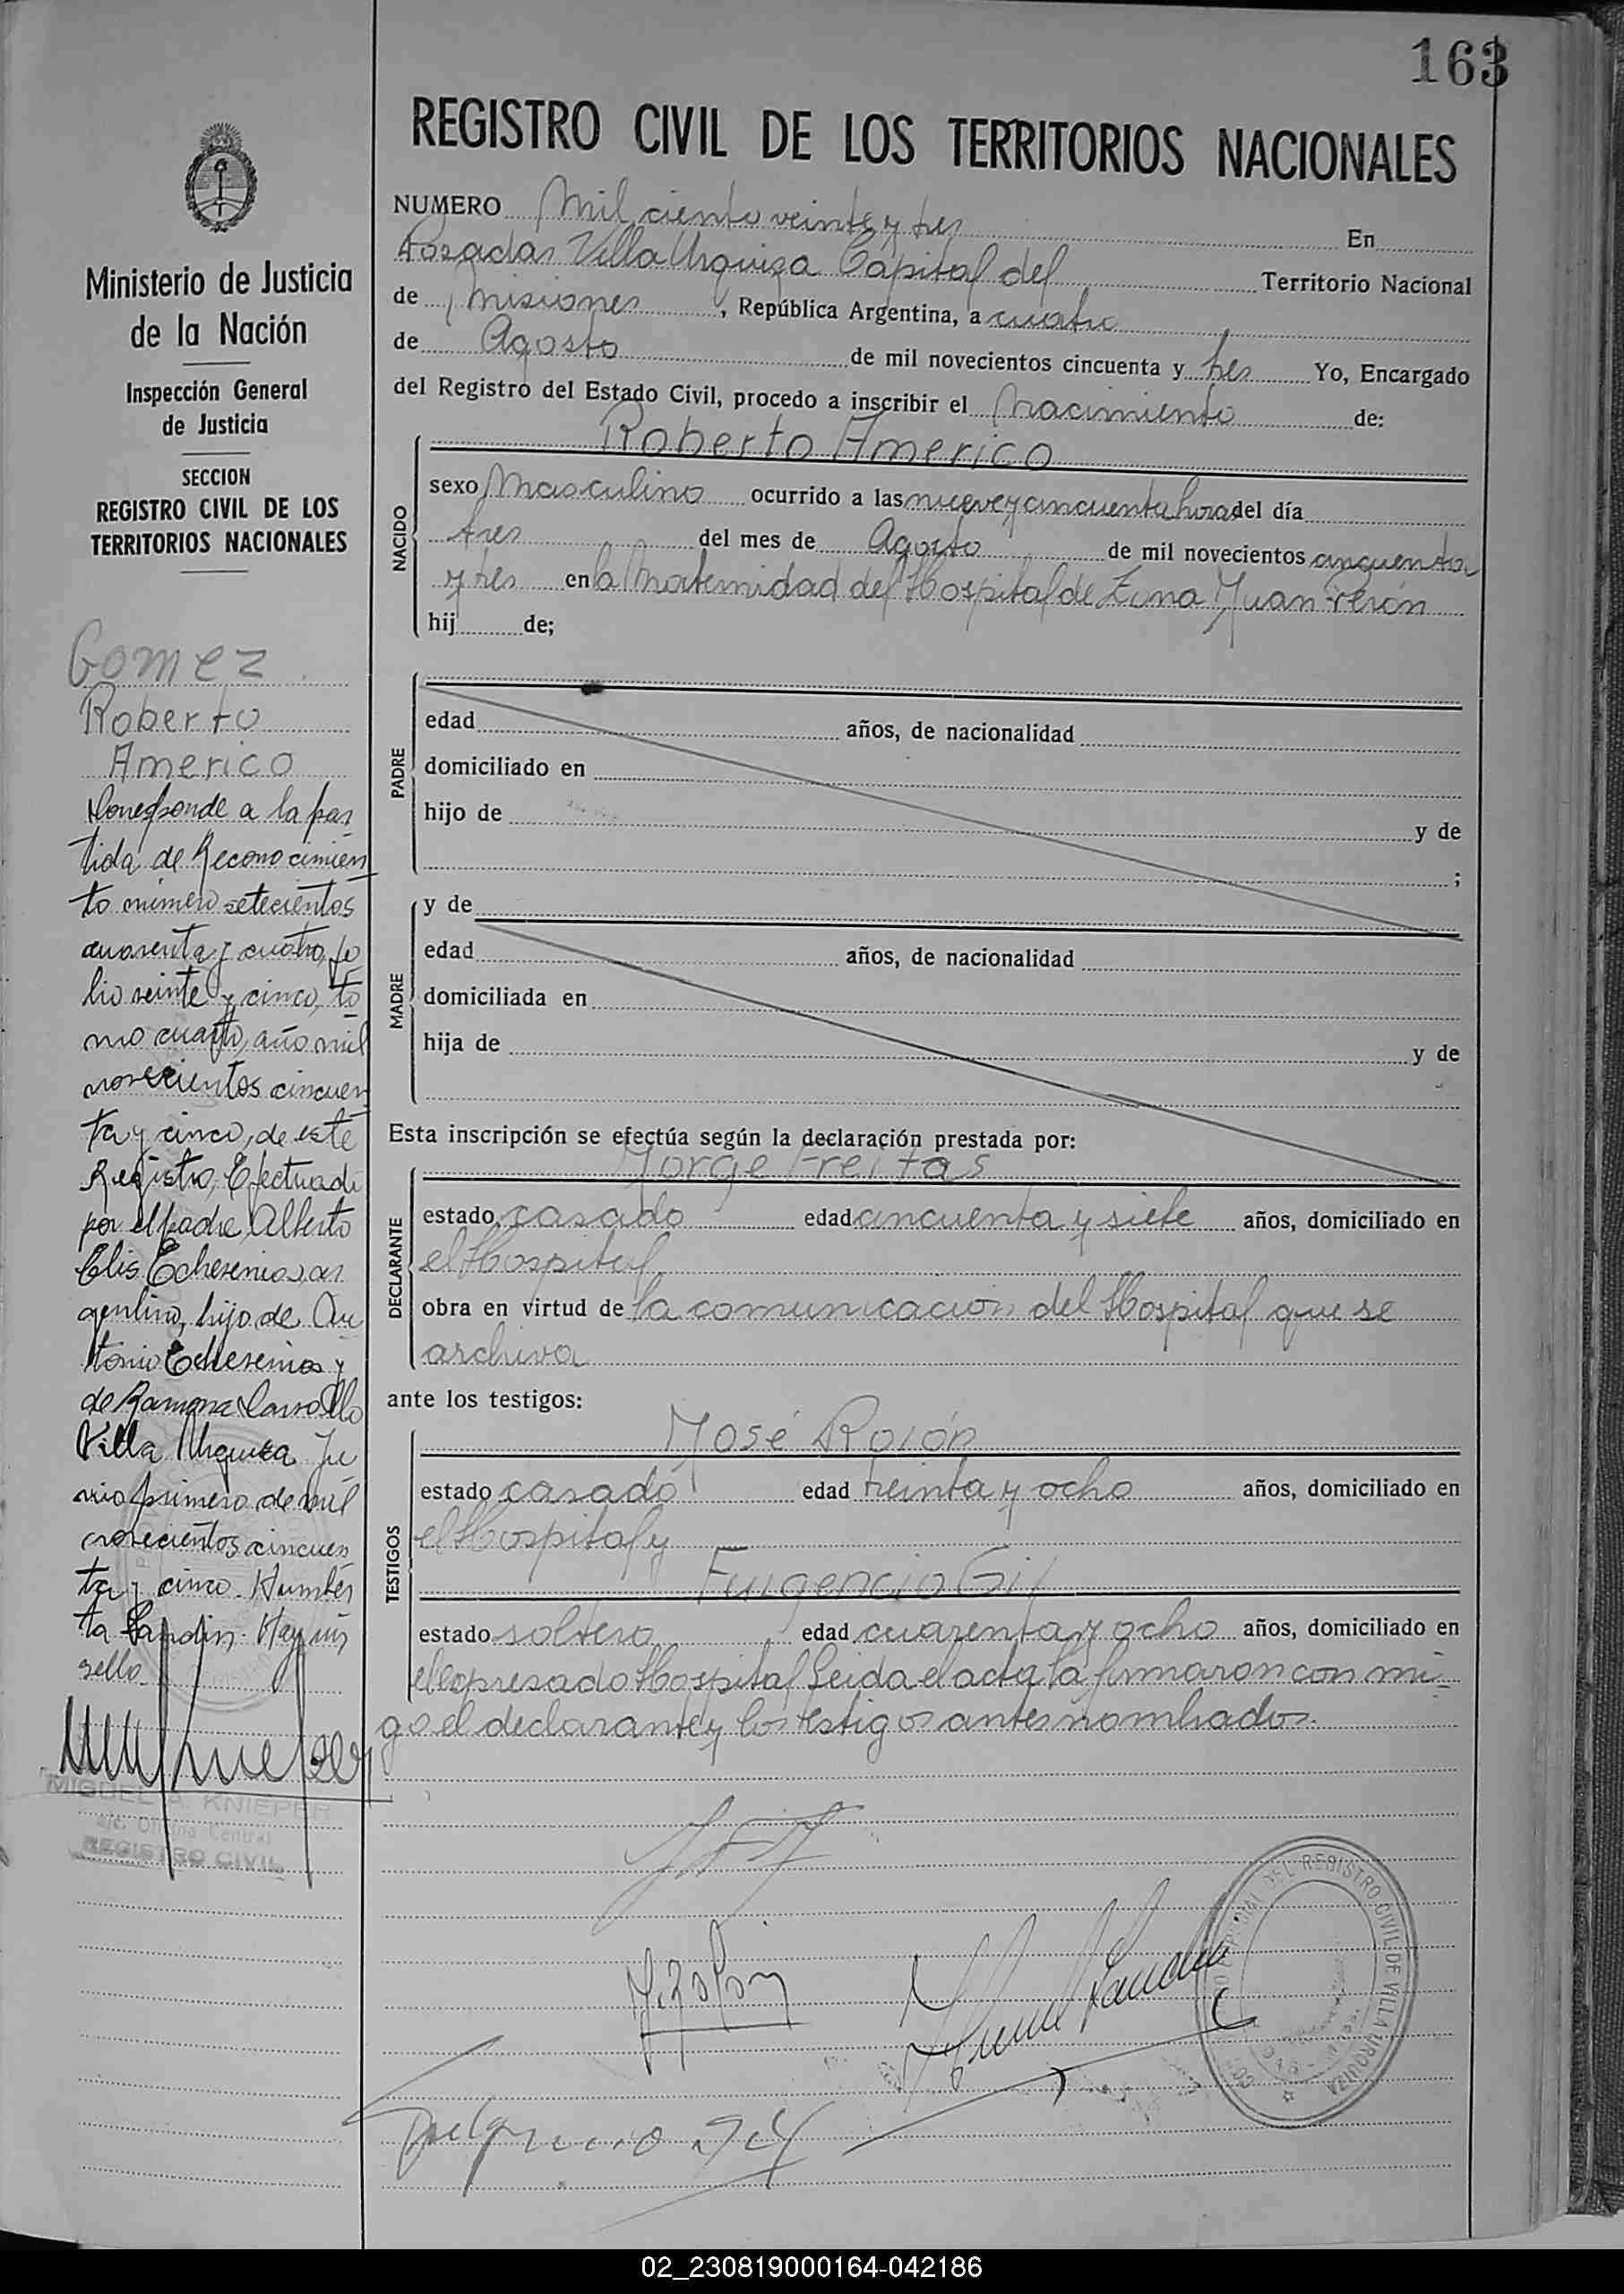 163
REGISTRO CIVIL DE LOS TERRITORIOS NACIONALES
Ministerio de Justicia
de la Nación
Inspección General
de Justicia
SECCION
REGISTRO CIVIL DE LOS
TERRITORIOS NACIONALES
Gomez
Roberto
Americo
Corresponde a la par
tida de Reconocimien
to número setecientos
cuarenta y cuatro, fo
lio veinte y cinco, to
mo cuarto, año mil
novecientos cincuen
ta y cinco, de este
Registro, Efectuado
por el padre, Alberto
Elis Echesenios, ar
gentino, hijo de An
tonio Echesenios y
de Ramona
Villa Urquiza Ju
nio primero de mil
novecientos cincuen
ta y cinco. Humber
ta Landin. Hay un
sello.
MIGUEL A. KNIEPER
a/c. Oficina Central
REGISTRO CIVIL
NUMERO Mil ciento veinte y tres En
Posadas Villa Urquiza Capital del Territorio Nacional
de Misiones, República Argentina, a cuatro
de Agosto de mil novecientos cincuenta y tres Yo, Encargado
del Registro del Estado Civil, procedo a inscribir el Nacimiento de:
NACIDO
Roberto Americo
sexo Masculino ocurrido a las nueve y cincuenta horas del día
tres del mes de Agosto de mil novecientos cincuenta
y tres en la Maternidad del Hospital de Zona Juan Perón
hij de;
PADRE
edad años, de nacionalidad
domiciliado en
hijo de y de
;
MADRE
y de
edad años, de nacionalidad
domiciliada en
hija de y de
Esta inscripción se efectúa según la declaración prestada por:
DECLARANTE
Jorge Freitas
estado casado edad cincuenta y siete años, domiciliado en
el Hospital
obra en virtud de la comunicacion del Hospital que se
archiva
ante los testigos:
TESTIGOS
José Rolón
estado casado edad treinta y ocho años, domiciliado en
el Hospital y
Fulgencio Gil
estado soltero edad cuarenta y ocho años, domiciliado en
el expresado Hospital Leida el acta la firmaron con mi
go el declarante y los testigos antes nombrados.
J. Rolon
Fulgencio Gil
DEL REGISTRO CIVIL DE VILLA URQUIZA
02_230819000164-042186